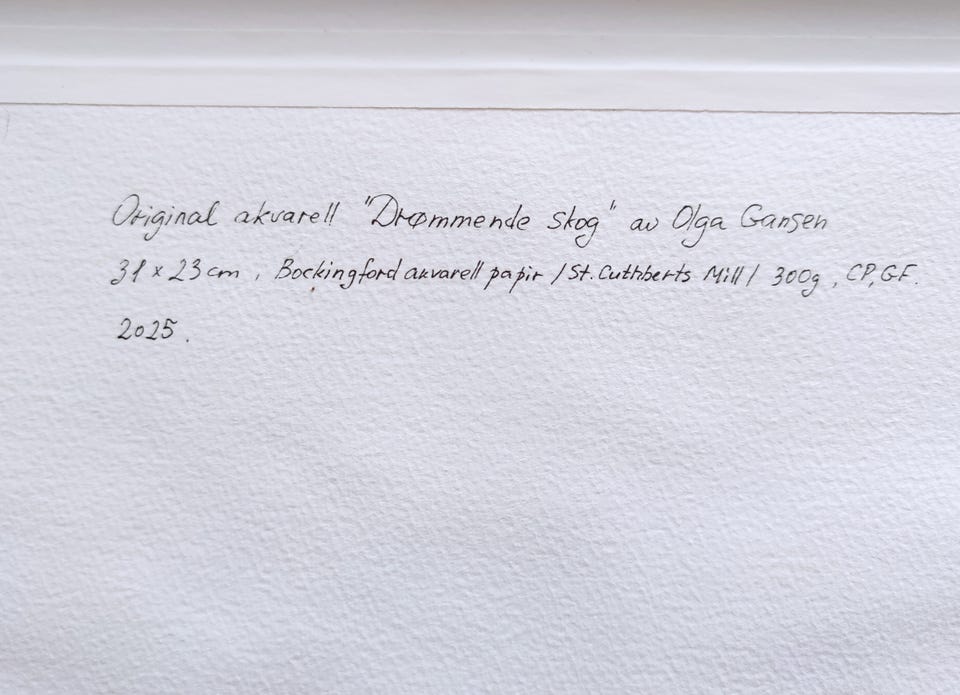 Original akvarell "Drømmende skog" av Olga Gansen
31 x 23 cm, Bockingford akvarell papir /St. Cuthberts Mill/ 300g, CP, GF.
2025.